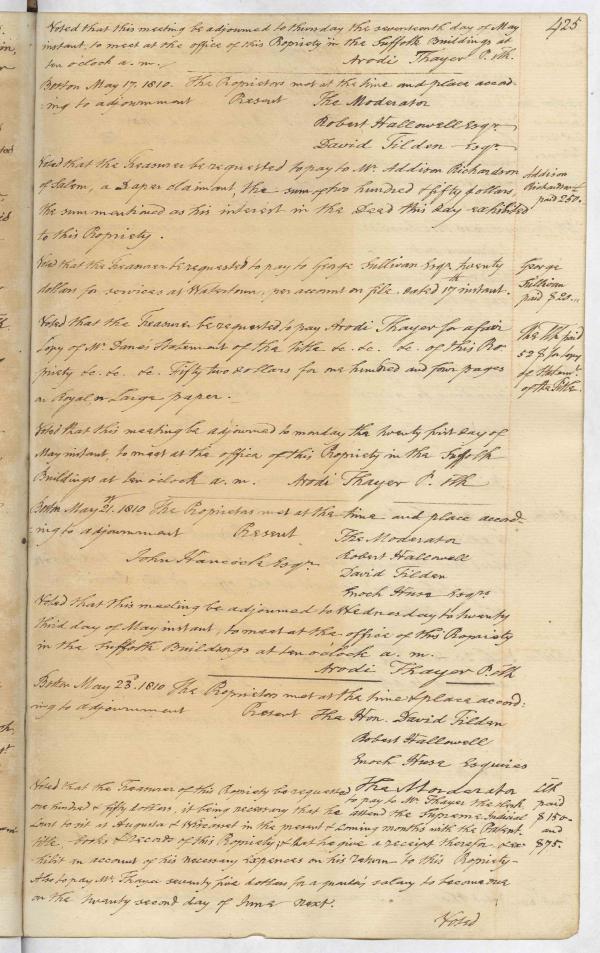 425
Voted that this meeting be adjourned to thursday the seventeenth day of May
instant, to meet at the office of this Propriety in the Suffolk Buildings at
ten oclock a. m. Arodi Thayer P. Clk.
Boston May 17. 1810. The Proprietors met at the time and place accord-
-ing to adjournment Present The Moderator
Robert Hallowell Esqr.
David Tilden Esqr.
Voted that the Treasurer be requested to pay to Mr. Addison Richardson
of Salem, a Draper claimant, the sum of two hundred & fifty dollars,
the sum mentioned as his interest in the Deed this day exhibited
to this Propriety.
Addison
Richardson
paid 250.
Voted that the Treasurer be requested to pay to George Sullivan Esqr. twenty
dollars for services at Watertown, per account on file. dated 17th instant.
George
Sullivan
paid $20...
Voted that the Treasurer be requested to pay Arodi Thayer for a fair
Copy of Mr. Dane's Statement of the Title &c. &c. &c. of this Pro-
priety &c. &c. &c. Fifty two dollars for one hundred and four pages
on Royal or Large paper.
The Clk paid
52 $ for Copy
of Statemt.
of the Title.
Voted that this meeting be adjourned to monday the twenty first day of
May instant, to meet at the office of this Propriety in the Suffolk
Buildings at ten oclock a. m. Arodi Thayer P. Clk
Boston May 21. 1810 The Proprietors met at the time and place accord-
-ing to adjournment Present The Moderator
John Hancock Esqr. Robert Hallowell
David Tilden
Enoch Huse Esqrs
Voted that this meeting be adjourned to Wednesday to twenty
third day of May instant, to meet at the office of this Propriety
in the Suffolk Buildings at ten oclock a. m.
Arodi Thayer P. Clk
Boston May 23d. 1810 The Proprietors met at the time & place accord:
-ing to adjournment Present The Hon. David Tilden
Robert Hallowell
Enoch Huse Esquires
The Moderator
Voted that the Treasurer of this Propriety be requested to pay to Mr. Thayer the Clerk
one hundred & fifty dollars, it being necessary that he attend the Supreme Judicial
Court to sit at Augusta & Wiscasset in the present & coming months with the Patent
title, Books & Records of this Propriety, & that he give a receipt therefor & ex-
hibit an account of his necessary expences on his return to this Propriety-
Also to pay Mr. Thayer seventy five dollars for a quarter's salary to become due
on the twenty second day of June next.
Clk
paid
$ 150-
and
$75.
Voted